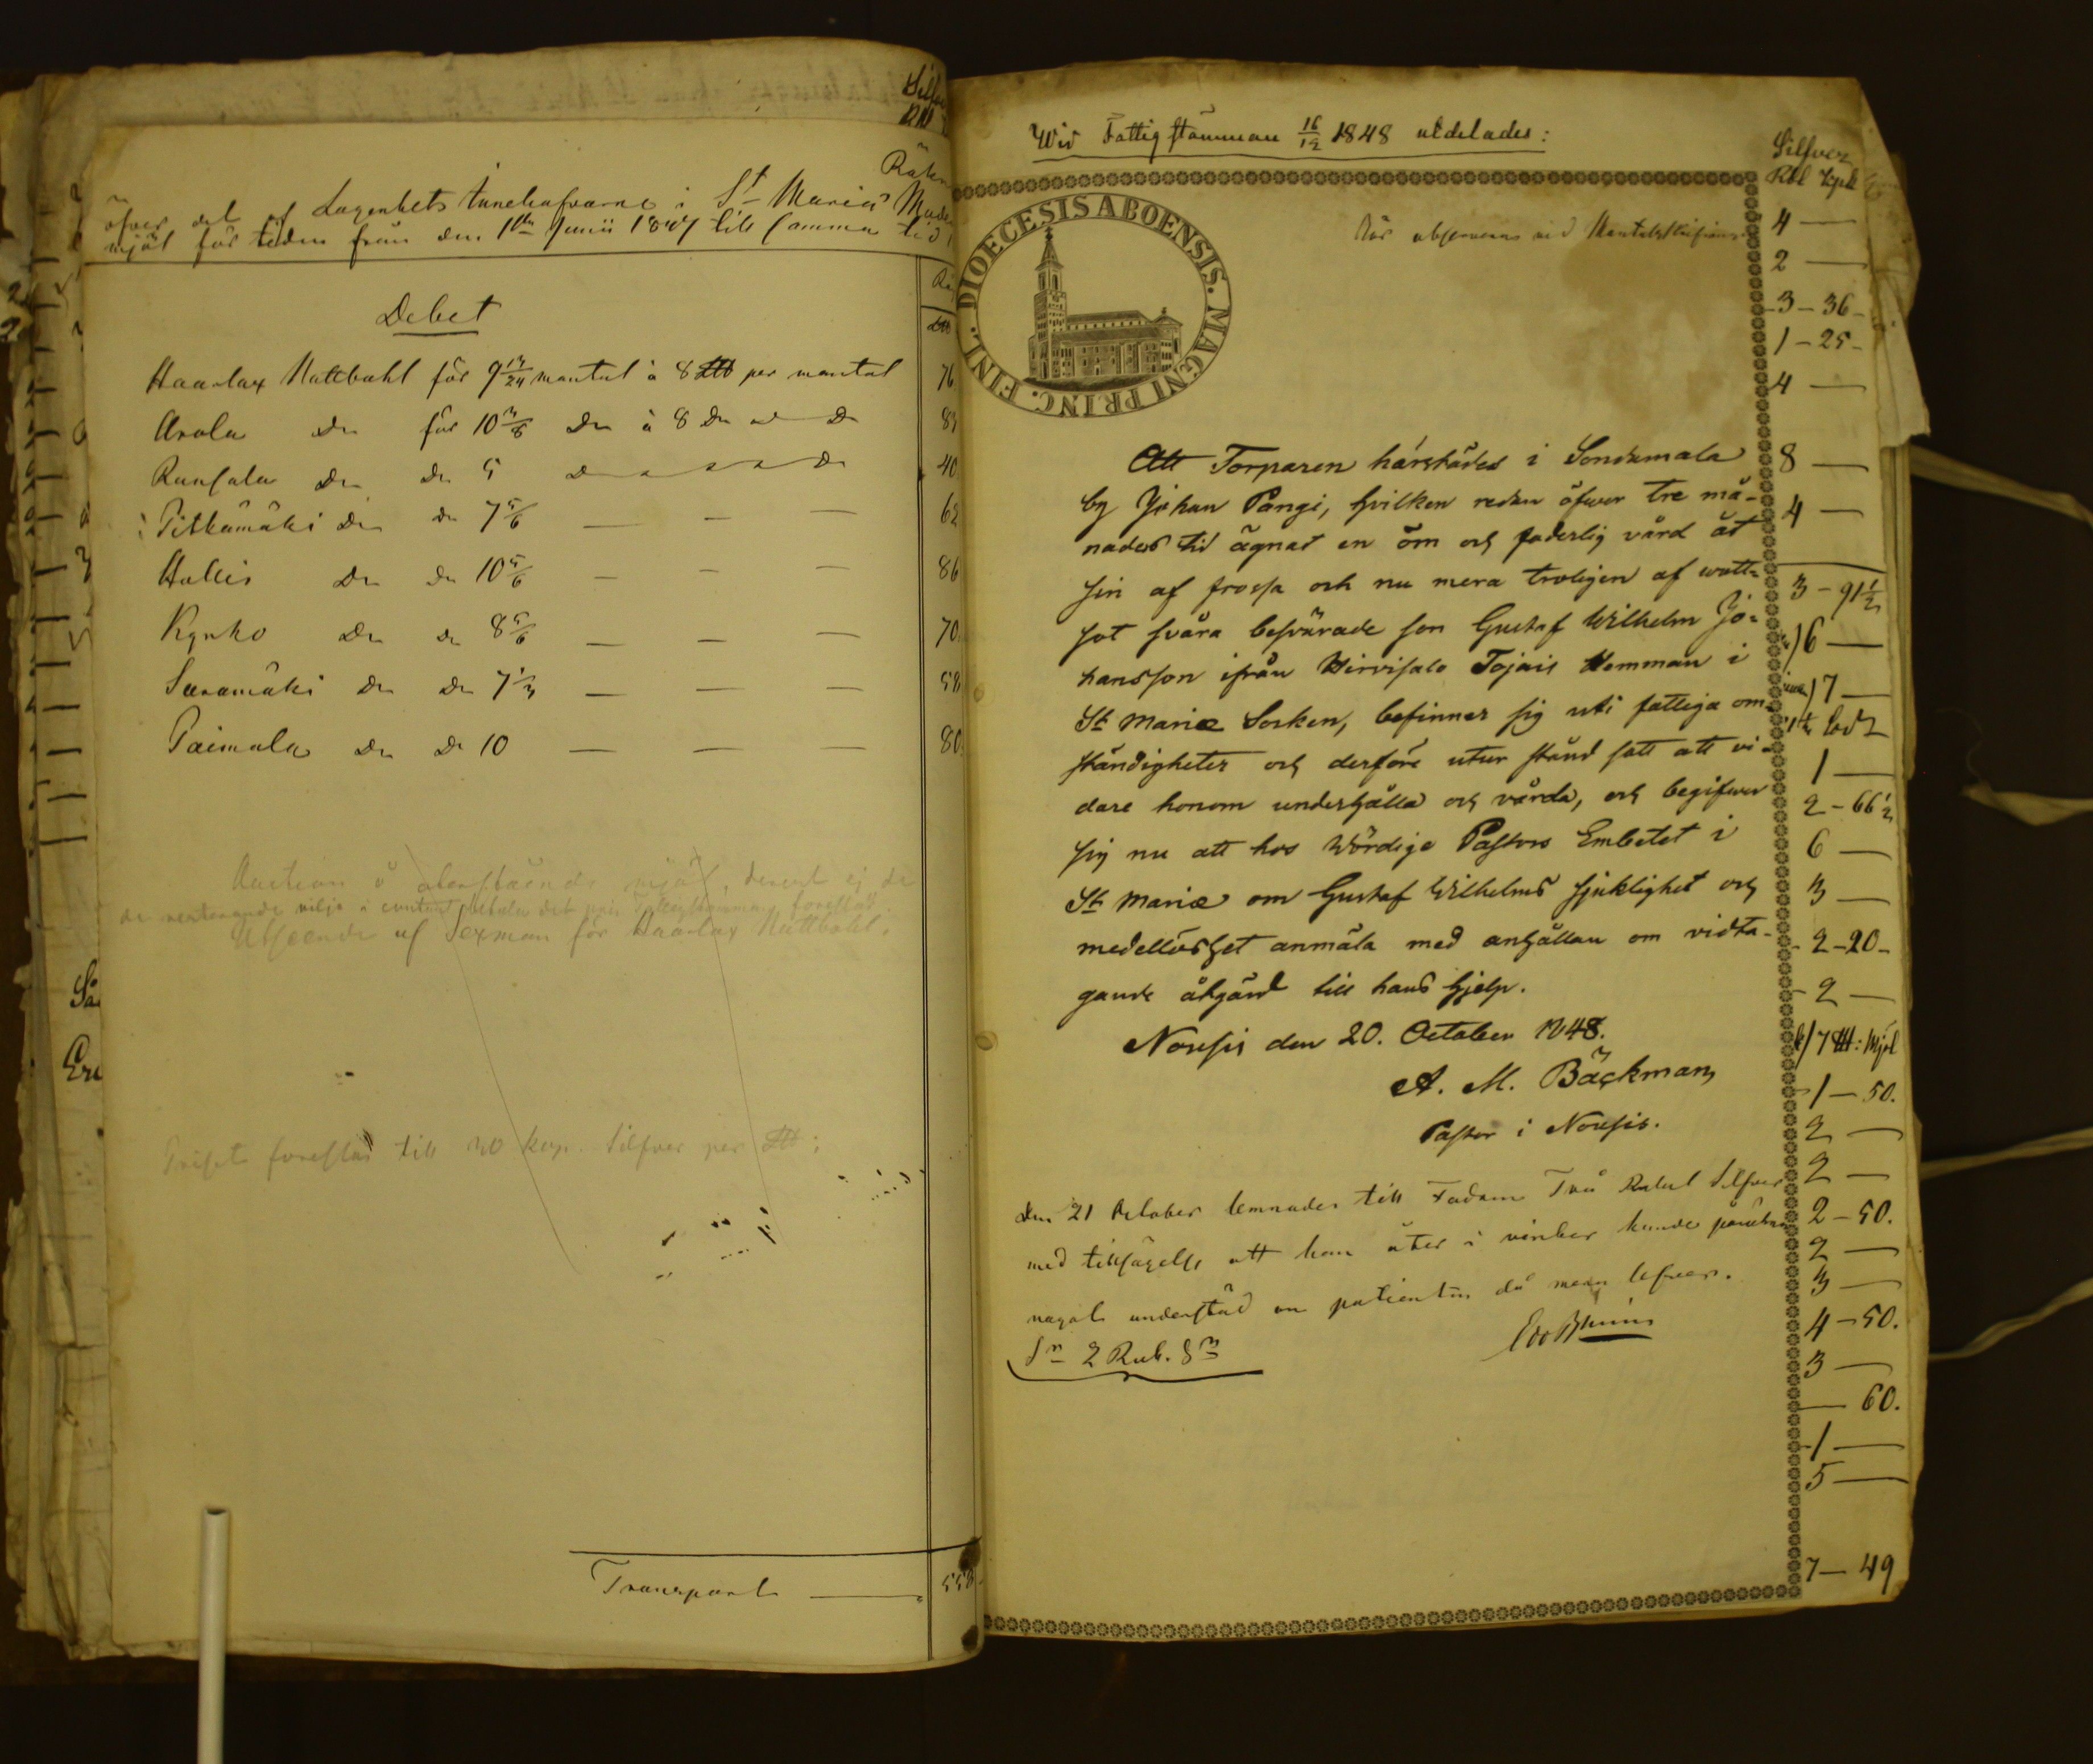 Silfver
Rbl
Räkn
öfver det af Lägenhets Innehafvarne i St Mariæ
mjöl för tiden från den 1sta Junii 1847 till samma tid
Debet
Haarlax Nattbohl för 9 13/24 mantal à 8 LU per mantal 76
Arola Do för 10 3/8 Do à 8 Do Do 83
Runsala Do Do 5 Do Do 40
Pitkämäki Do Do 7 5/6 — — — 62
Hallis Do Do 10 5/6 — — — 86
Kyrko Do Do 8 5/6 — — — 70
Saramäki Do Do 7 1/3 — — — 58
Paimala Do Do 10 — — — 80
Auction å återstående mjöl, derest ej de
de resterande vilja i contant betala det pris Fattigstämman föreslår
Utseende af Sexman för Haarlax Nattbohl.
Priset föreslås till 30 kop. Silfver per LU:
Transport — 558
Wid Fattigstämman 16/12 1848 utdelades:
Silfver
Rbl Kpk
DIOECESIS ABOENSIS. MAGNI PRINC. FINL.
Bör observeras vid Mantalsskrifning
4 —
2 —
3 - 36
1 - 25
4 —
Att Torparen härstädes i Sondamala
by Johan Pangi, hvilken redan öfwer tre må-
naders tid ägnat en öm och faderlig vård åt
sin af frossa och nu mera troligen af watt-
sot svåra besvärade son Gustaf Wilhelm Jo-
hansson ifrån Hirvisalo Tojais Hemman i
St Mariæ Socken, befinner sig uti fattiga om-
ständigheter och derföre utur stånd satt att vi-
dare honom underhålla och vårda, och begifwer
sig nu att hos Wördige Pastors Embetet i
St Mariæ om Gustaf Wilhelms sjuklighet och
medellöshet anmäla med anhållan om vidta-
gande åtgärd till hans hjelp.
Nousis den 20. October 1848.
A. M. Bäckman,
Pastor i Nousis.
Den 21 October lemnades till Fadren Två Rubel Silfver
med tillsägelse att han åter i vinter kunde påräkna
något understöd om patienten då ännu lefver.
Sn 2 Rub. Sr
8 —
4 —
3 - 91 1/2
6 —
7 —
1 —
2 - 66 1/2
6 —
3 —
2 - 20
2 —
7 LU: Mjöl
1 — 50.
2 —
2 —
2 — 50.
2 —
3 —
4 — 50.
3 —
— 60.
1 —
5 —
7 — 49